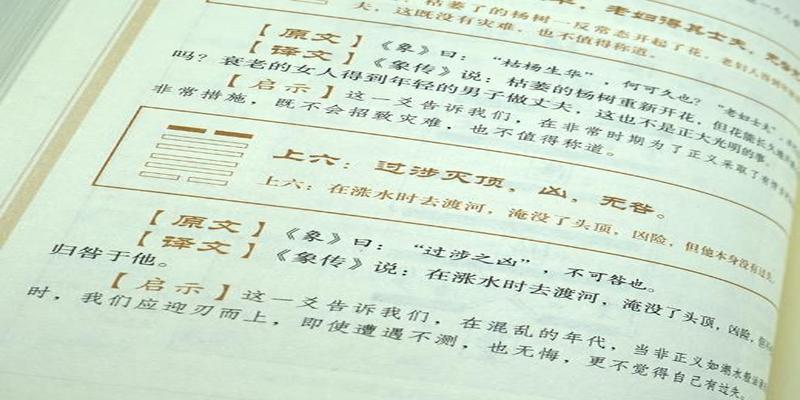 枯萎了的杨树一反常态开起了花,老妇人
夫,这既没有灾难,也不值得称道。
【原文】《象》曰:“枯杨生华”,何可久也?“老妇士夫”,
【译文】《象传》说:枯萎的杨树重新开花,但花能长久
吗?衰老的女人得到年轻的男子做丈夫,这也不是正大光明的事。
【启示】这一爻告诉我们,在非常时期为了正义采取了
非常措施,既不会招致灾难,也不值得称道。
上六:过涉灭顶,凶,无咎。
上六:在涨水时去渡河,淹没了头顶,凶险,但他本身没有过失
【原文】《象》曰:“过涉之凶”,不可咎也。
【译文】《象传》说:在涨水时去渡河,淹没了头顶,凶险,
归咎于他。
【启示】这一爻告诉我们,在混乱的年代,当非正义如潮水般
时,我们应迎刃而上,即使遭遇不测,也无悔,更不觉得自己有过失。